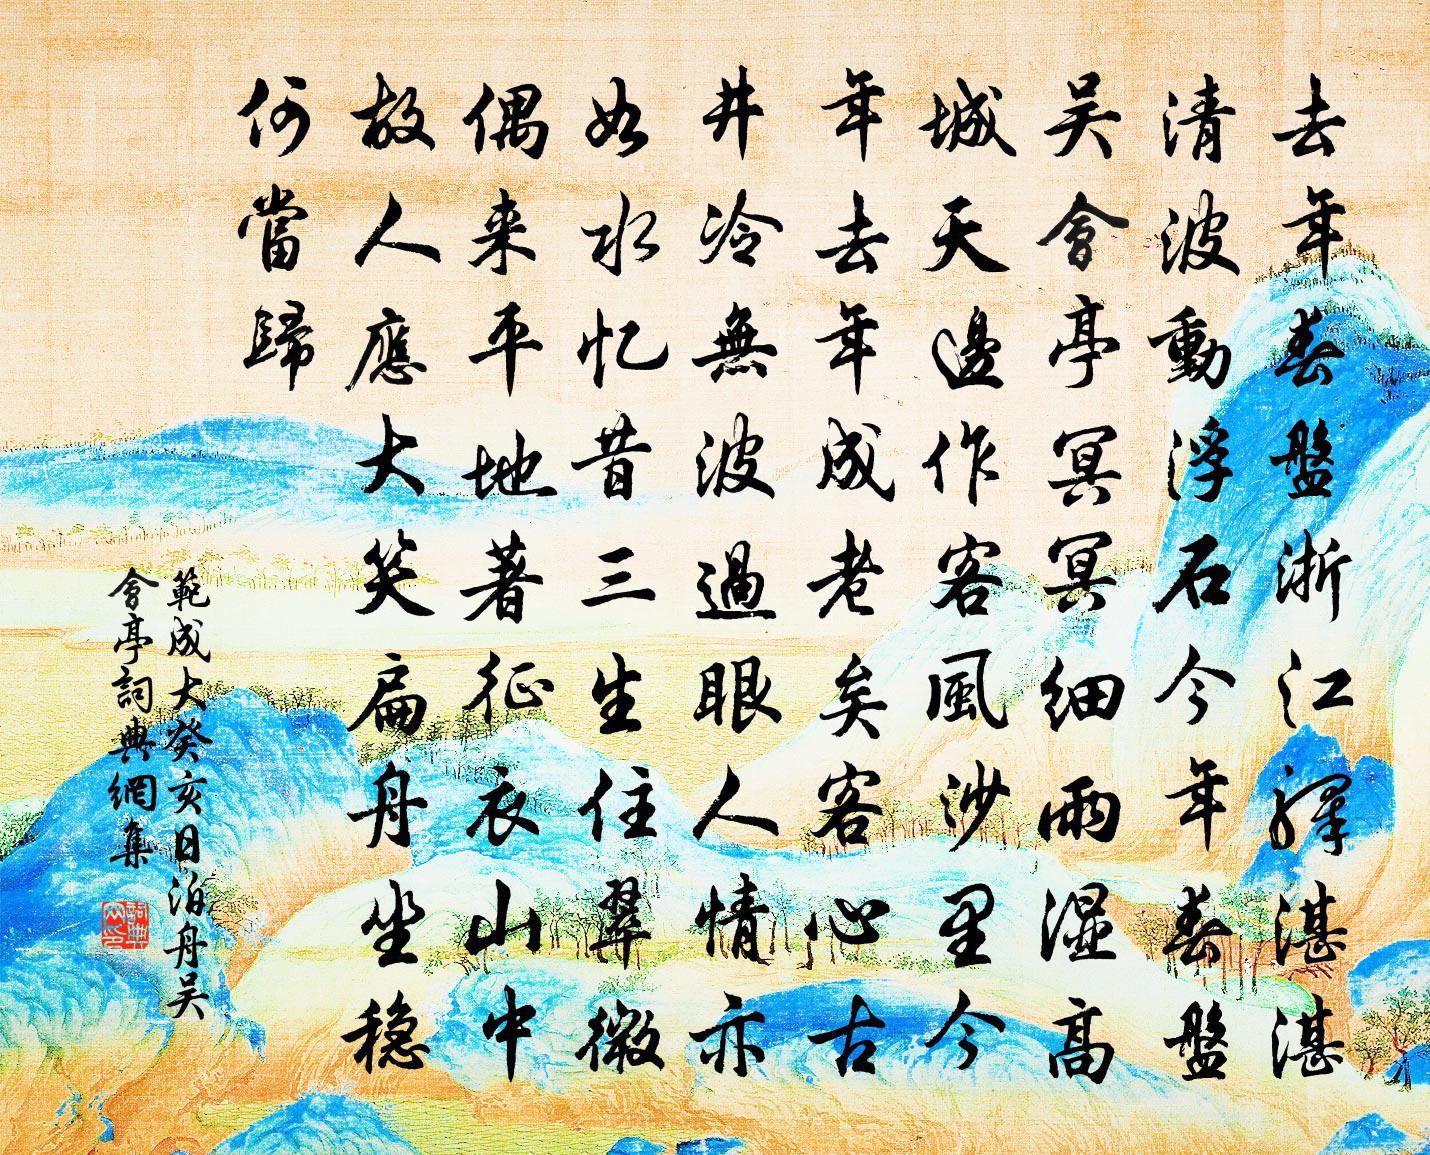 去年春盤浙江驛湛湛
清波動浮石今年春盤
吴會亭冥冥細雨湿高
城天邊作客風沙里今
年去年成老矣客心古
井冷無波過眼人情亦
如水忆昔三生住翠微
偶来平地著征衣山中
故人應大笑扁舟坐稳
何當歸
範成大癸亥日泊舟吴
會亭詞典網集